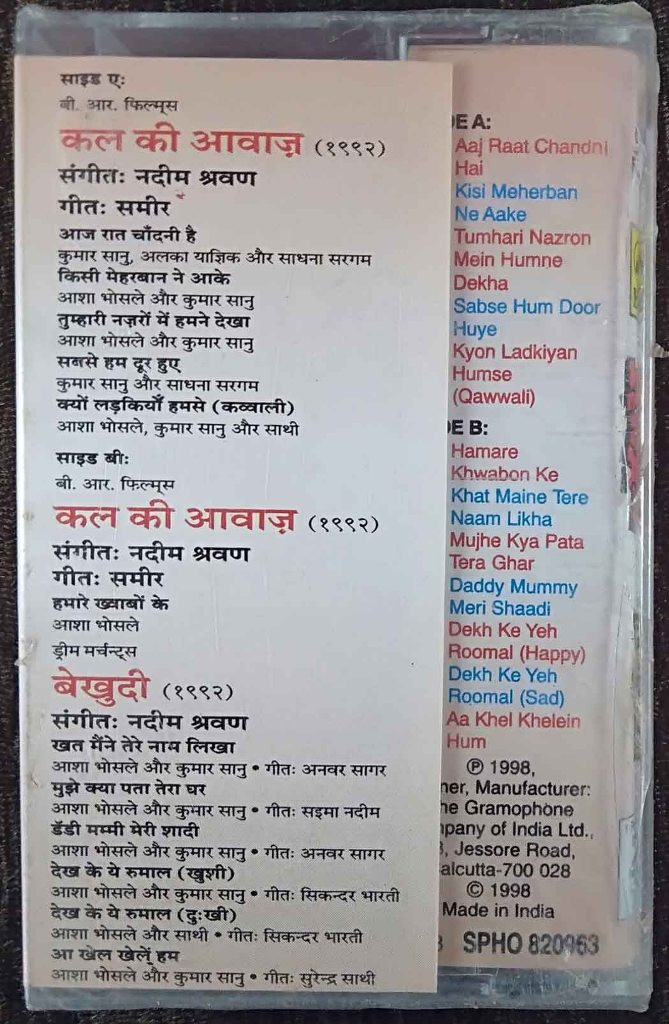 साइड ए:
बी. आर. फिल्म्स
कल की आवाज़ (१९९२)
संगीत: नदीम श्रवण
गीत: समीर
आज रात चाँदनी है
कुमार सानु, अलका याज्ञिक और साधना सरगम
किसी मेहरबान ने आके
आशा भोसले और कुमार सानु
तुम्हारी नज़रों में हमने देखा
आशा भोसले और कुमार सानु
सबसे हम दूर हुए
कुमार सानु और साधना सरगम
क्यों लड़कियाँ हमसे (कव्वाली)
आशा भोसले, कुमार सानु और साथी
साइड बी:
बी. आर. फिल्म्स
कल की आवाज़ (१९९२)
संगीत: नदीम श्रवण
गीत: समीर
हमारे ख्वाबों के
आशा भोसले
ड्रीम मर्चन्ट्स
बेखुदी (१९९२)
संगीत: नदीम श्रवण
खत मैंने तेरे नाम लिखा
आशा भोसले और कुमार सानु • गीत: अनवर सागर
मुझे क्या पता तेरा घर
आशा भोसले और कुमार सानु • गीत: सइमा नदीम
डॅडी मम्मी मेरी शादी
आशा भोसले और कुमार सानु • गीत: अनवर सागर
देख के ये रुमाल (खुशी)
आशा भोसले और कुमार सानु • गीत: सिकन्दर भारती
देख के ये रुमाल (दुःखी)
आशा भोसले और साथी • गीत: सिकन्दर भारती
आ खेल खेलें हम
आशा भोसले और कुमार सानु • गीत: सुरेन्द्र साथी
DE A:
Aaj Raat Chandni
Hai
Kisi Meherban
Ne Aake
Tumhari Nazron
Mein Humne
Dekha
Sabse Hum Door
Huye
Kyon Ladkiyan
Humse
(Qawwali)
DE B:
Hamare
Khwabon Ke
Khat Maine Tere
Naam Likha
Mujhe Kya Pata
Tera Ghar
Daddy Mummy
Meri Shaadi
Dekh Ke Yeh
Roomal (Happy)
Dekh Ke Yeh
Roomal (Sad)
Aa Khel Khelein
Hum
℗ 1998,
ner, Manufacturer:
he Gramophone
pany of India Ltd.,
3, Jessore Road,
alcutta-700 028
© 1998
Made in India
SPHO 820963